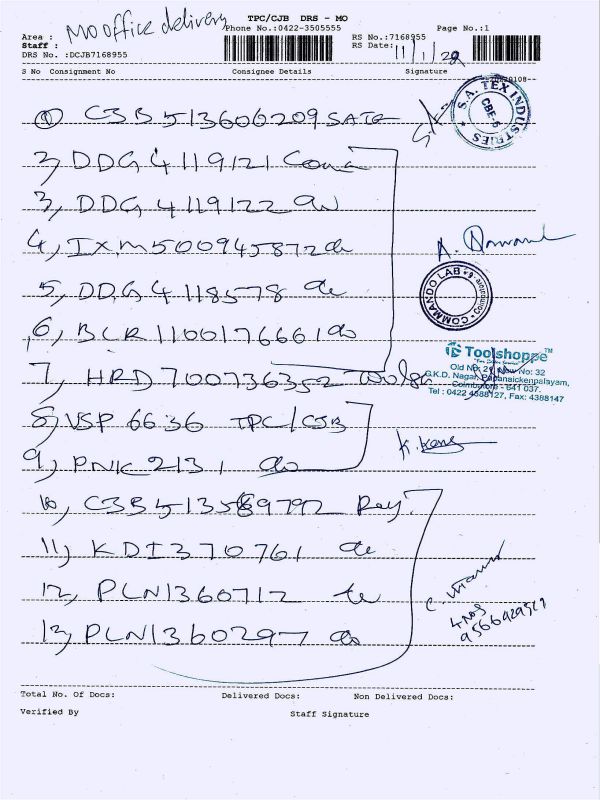 MO office delivery
TPC/CJB DRS - MO
Area : Phone No.:0422-3505555 Page No.:1
Staff : RS No.:7168955
DRS No. :DCJB7168955 RS Date: 11/1/20
S No Consignment No Consignee Details Signature
1) CJB 513606209 SATE
S.A. TEX INDUSTRIES
CBE-6
2, DDG 4119121 Coma
3, DDG 4119122 do
4, IXM500945872 do
A.
5, DDG 4118578 do
COMMANDO LAB
6, BLR 1100176661 do
Toolshoppe™
Old No: 29 New No: 32
G.K.D. Nagar, Pappanaickenpalayam,
Coimbatore - 641 037.
Tel : 0422 4588127, Fax: 4388147
7, HRD 700736352
8, VSP 6636 TPC/CJB
9, PNK 2131 do
10, CJB 513569792 Rey
11, KDI370761 do
12, PLN1360712 do
4 nos
13, PLN1360297 do
Total No. Of Docs: Delivered Docs: Non Delivered Docs:
Verified By Staff Signature